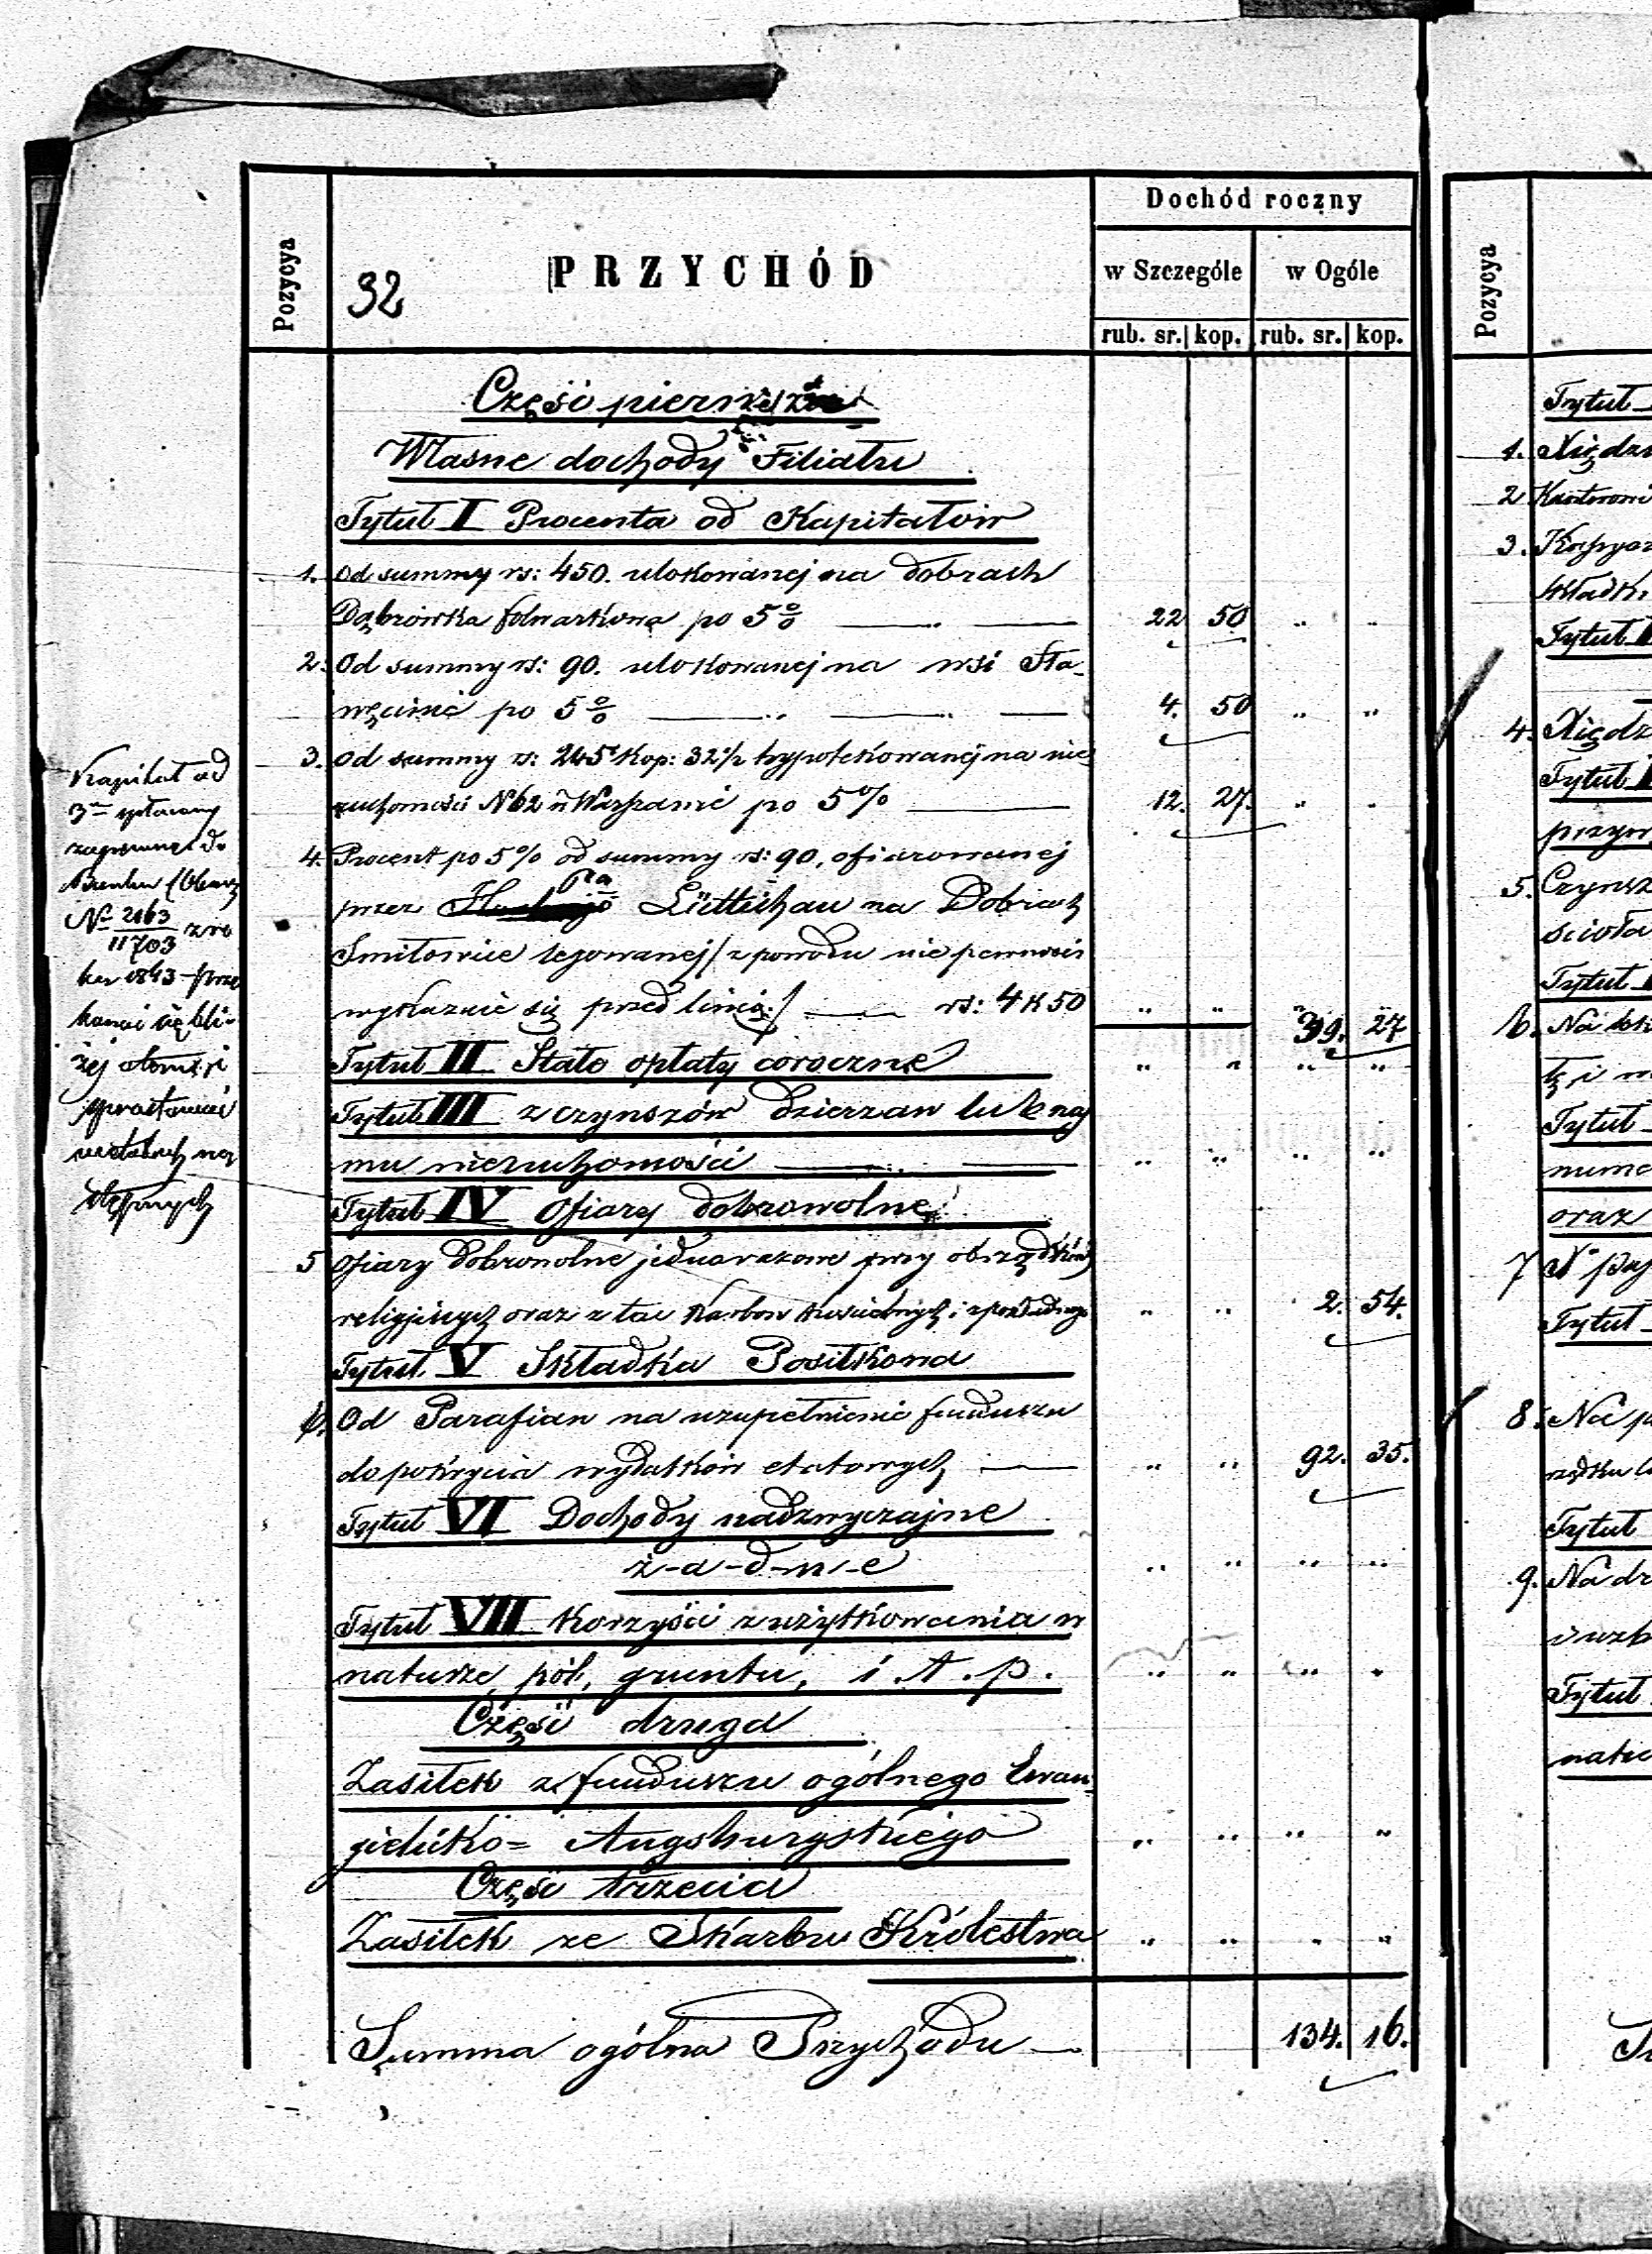 Dochód roczny
Pozycya
32
PRZYCHÓD
w Szczególe
w Ogóle
rub. sr. kop. rub. sr. kop.
Część pierwsza
Własne dochody Filiału
Tytuł I Procenta od Kapitałów
1. Od summy rs: 450. ulokowanej na dobrach
Dąbrówka folwarkowa po 5% 22 50 " "
2. Od summy rs: 90. ulokowanej na wsi Sła-
węcinie po 5% 4. 50 " "
3. Od summy rs: 245 Kop: 32½ hypotekowanej na nie
ruchomości N 62 w Warszawie po 5% 12. 27. " "
4. Procent po 5% od summy rs: 90, ofiarowanej
przez Pa Lüttichau na Dobrach
Smiłowice legowanej / z powodu niepewności
wykazuie się przed linią / rs: 4 K 50 " " 39. 27
Tytuł II Stałe opłaty coroczne " " " "
Tytuł III z czynszów dzierzaw lub naj
mu nieruchomości " " " "
Tytuł IV Ofiary dobrowolne
5 Ofiary dobrowolne jednorazowe przy obrzędków
religijnych oraz z tac karbon kościelnych i " " 2. 54.
Tytuł V Składka Posiłkowa
6. Od Parafian na uzupełnienie funduszu
do pokrycia wydatków etatowych " " 92. 35.
Tytuł VI Dochody nadzwyczajne
ż-a-d-n-e " " " "
Tytuł VII Korzyści z użytkowania w
naturze, pól, gruntu, i. t. p. " " " "
Część druga
Zasiłek z funduszu ogólnego Ewan-
gielicko= Augsburgskiego " " " "
Część trzecia
Zasiłek ze Skarbu Królestwa " " " "
Summa ogólna Przychodu 134. 16.
Kapitał ad
3m spłacony
do
Banku
No 2163
11703
1843
kanci się bli-
żej
następnych
Pozycya
Tytuł
1. Xiędzu
2
3.
Tytuł
4. Xiędz
Tytuł
5. Czynsz
Tytuł
6. Na
Tytuł
oraz
7
Tytuł
8. Na
Tytuł
9. Na
Tytuł